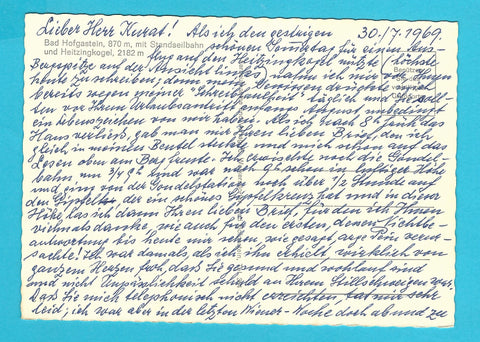 Lieber Herr Kurat! Als ich den gestrigen 30./7. 1969.
Bad Hofgastein, 870 m, mit Standseilbahn
und Heitzingkogel, 2182 m
schönen Sonntag für einen Aus-
flug auf den Heitzingkogel nützte (höchste
Bergspitze auf der Ansicht links) nahm ich mir vor,
heute zu schreiben; denn mein Gewissen drückte mich
bereits wegen meiner "Schreibfaulheit" täglich und Sie soll-
ten vor Ihrem Urlaubsantritt anfangs August unbedingt
ein Lebenszeichen von mir haben. Als ich nach 8h das
Haus verließ, gab man mir Ihren lieben Brief, den ich
gleich in meinen Beutel steckte und mich schon auf das
Lesen oben am Berg freute. Ich erwischte noch die Gondel-
bahn um 3/4 9h und war nach 9h schon in luftiger Höhe
und ging von der Gondelstation noch über 1/2 Stunde auf
den Gipfel, der ein schönes Gipfelkreuz hat und in dieser
Höhe las ich dann Ihren lieben Brief, für den ich Ihnen
vielmals danke, wie auch für den ersten, dessen Nichtbe-
antwortung bis heute mir schon wie gesagt, arge Pein verur-
sachte! Ich war damals, als ich ihn erhielt, wirklich von
ganzem Herzen froh, daß Sie gesund und wohlauf sind
und nicht Unpässlichkeit Schuld an Ihrem Stillschweigen war.
Daß Sie mich telephonisch nicht erreichten, tat mir sehr
leid; ich war aber in der letzten Wiener-Woche doch ab und zu